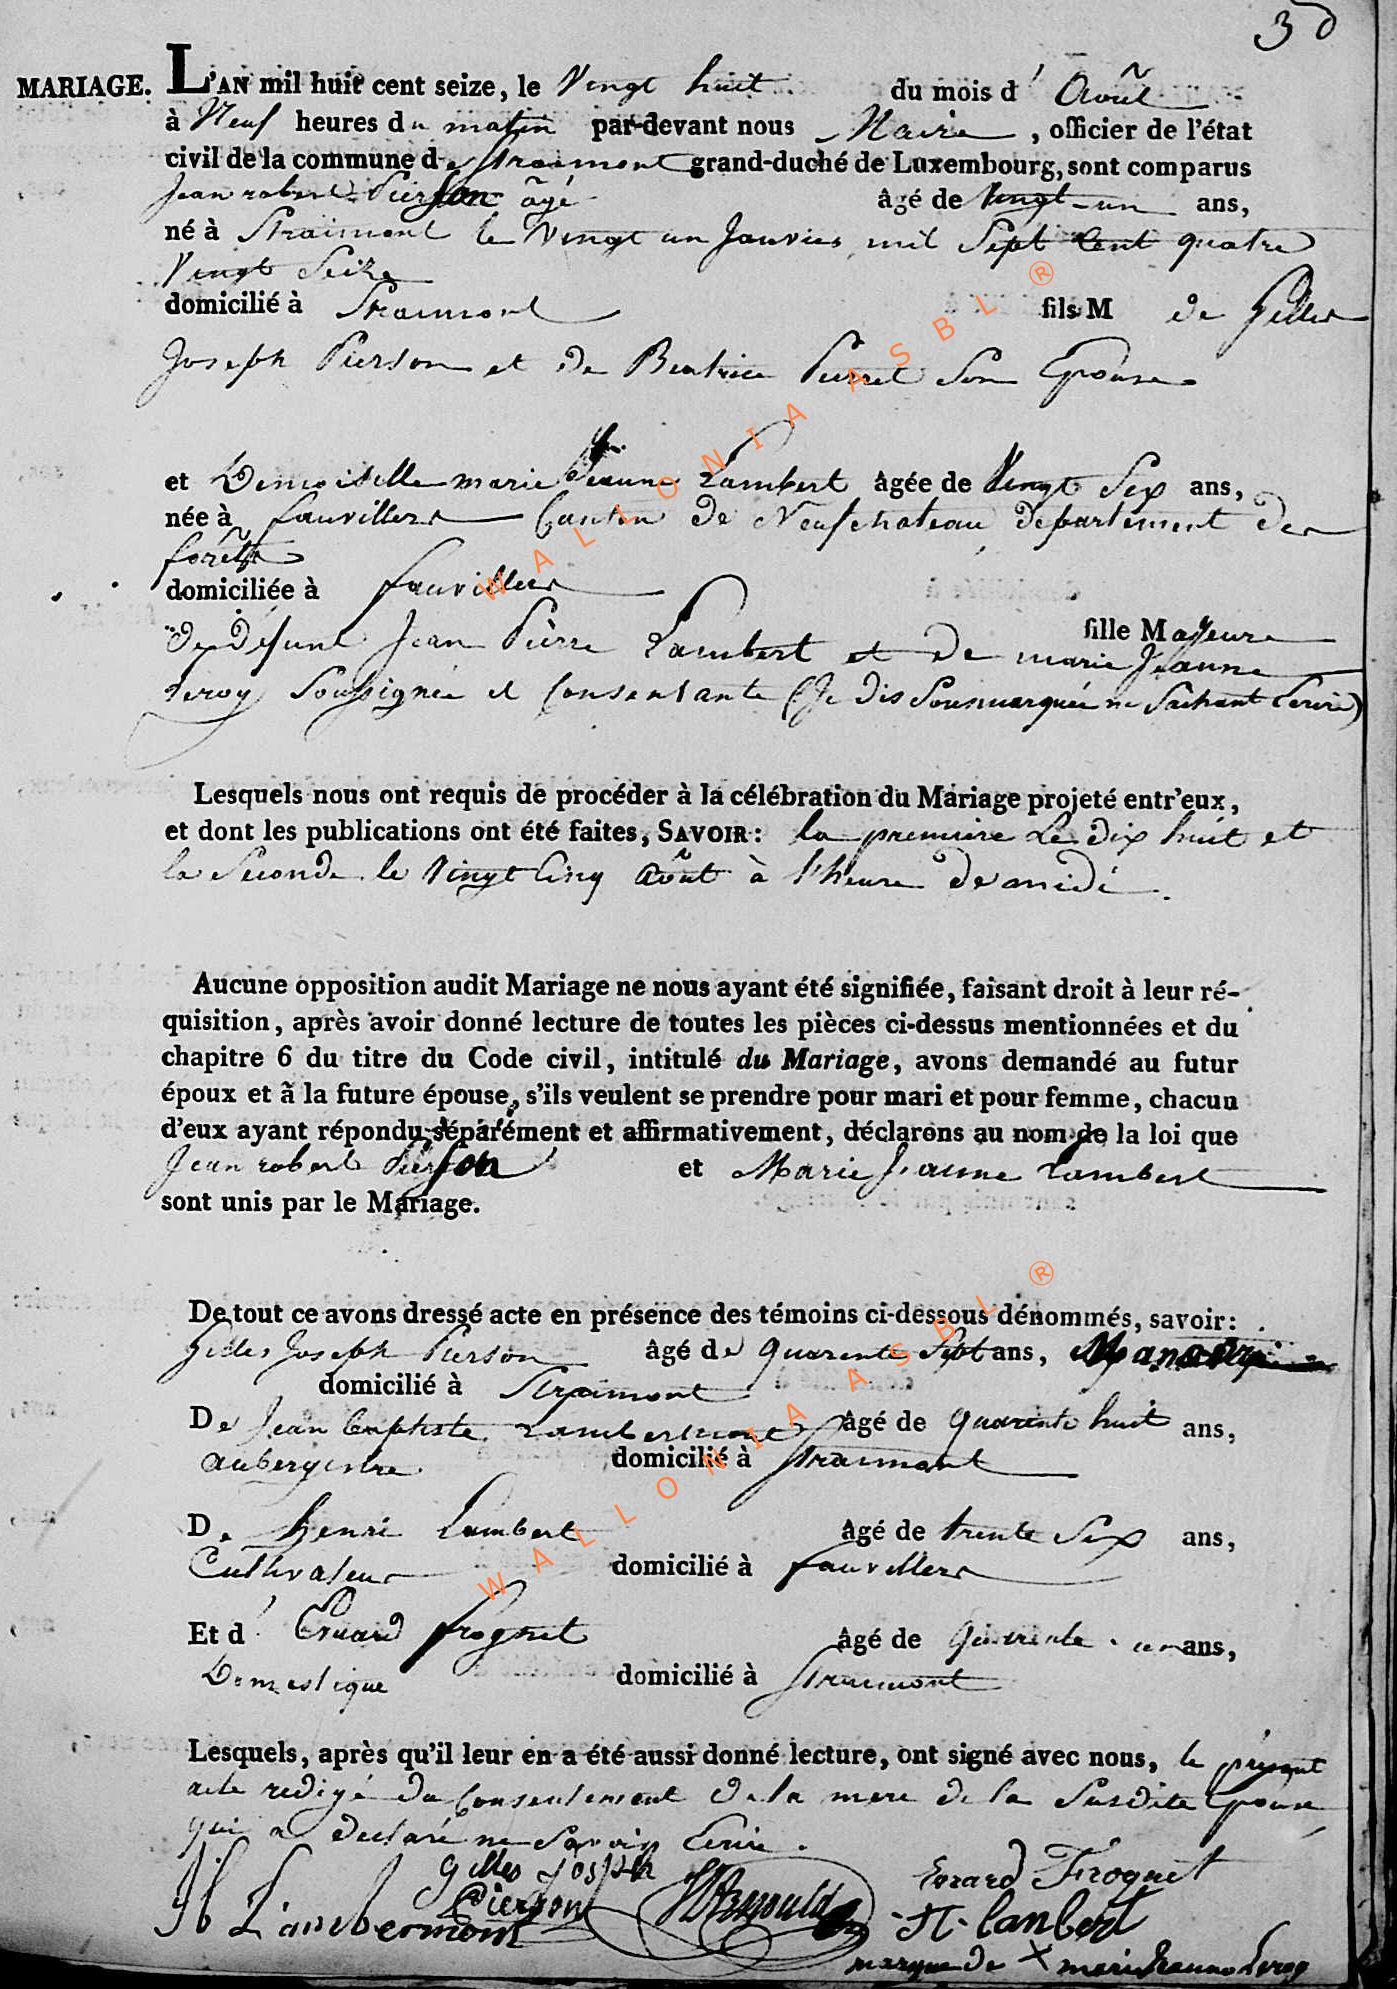 30
MARIAGE. L'AN mil huit cent seize, le Vingt huit du mois d' Août
à Neuf heures du matin par-devant nous Maire, officier de l'état
civil de la commune de Straimont grand-duché de Luxembourg, sont comparus
Jean robert Pierson âgé âgé de Vingt-un ans,
né à Straimont le Vingt un Janvier mil Sept Cent quatre
Vingt Seize
domicilié à Straimont fils M de Gilles
Joseph Pierson et de Beatrice Pierret Son Epouse
et Demoiselle marie Jeanne Lambert âgée de Vingt Six ans,
née à fauvillers Canton de Neufchateau, departement des
forêts
domiciliée à fauvillers
fille Majeure
De Défunt Jean Pierre Lambert et de marie Jeanne
Leroy Soussignée et Consentante (Je dis Sousmarquée ne Sachant Ecrire)
Lesquels nous ont requis de procéder à la célébration du Mariage projeté entr'eux,
et dont les publications ont été faites, SAVOIR: la premiere Le dix huit et
la Seconde le Vingt Cinq Août à l'heure de midi.
Aucune opposition audit Mariage ne nous ayant été signifiée, faisant droit à leur ré-
quisition, après avoir donné lecture de toutes les pièces ci-dessus mentionnées et du
chapitre 6 du titre du Code civil, intitulé du Mariage, avons demandé au futur
époux et à la future épouse, s'ils veulent se prendre pour mari et pour femme, chacun
d'eux ayant répondu séparément et affirmativement, déclarons au nom de la loi que
Jean robert Pierson et Marie Jeanne Lambert
sont unis par le Mariage.
De tout ce avons dressé acte en présence des témoins ci-dessous dénommés, savoir:
Gilles Joseph Pierson âgé de quarente Sept ans,
domicilié à Straimont
De Jean baptiste Lambermont âgé de quarente huit ans,
aubergiste domicilié à Straimont
De henri Lambert âgé de trente Six ans,
Cultivateur domicilié à fauvillers
Et d' Evrard frognet âgé de quarente-un ans,
Domestique domicilié à Straimont
Lesquels, après qu'il leur en a été aussi donné lecture, ont signé avec nous, le présent
acte redigé du Consentement de la mere de la Susdite Epouse
qui a declaré ne Savoir Ecrire.
gilles joseph
Pierson
Evrard Frognet
Jb Lambermont
H. lambert
marque de X marie Jeanne Leroy
WALLONIA ASBL ®
WALLONIA ASBL ®